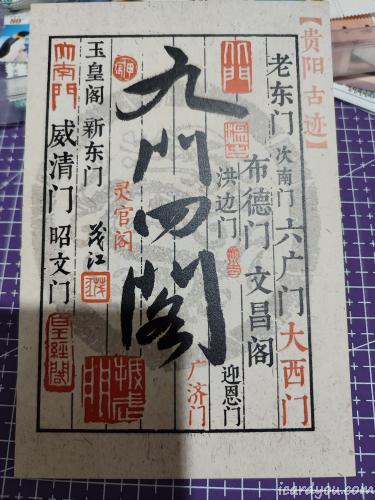 【贵阳古迹】
老东门 次南门 六广门 大西门
布德门 文昌阁
洪边门 迎恩门
广济门
九门四阁
灵官阁
玉皇阁 新东门 茂江
大南門 威清门 昭文门
皇經閣
icardyou.com